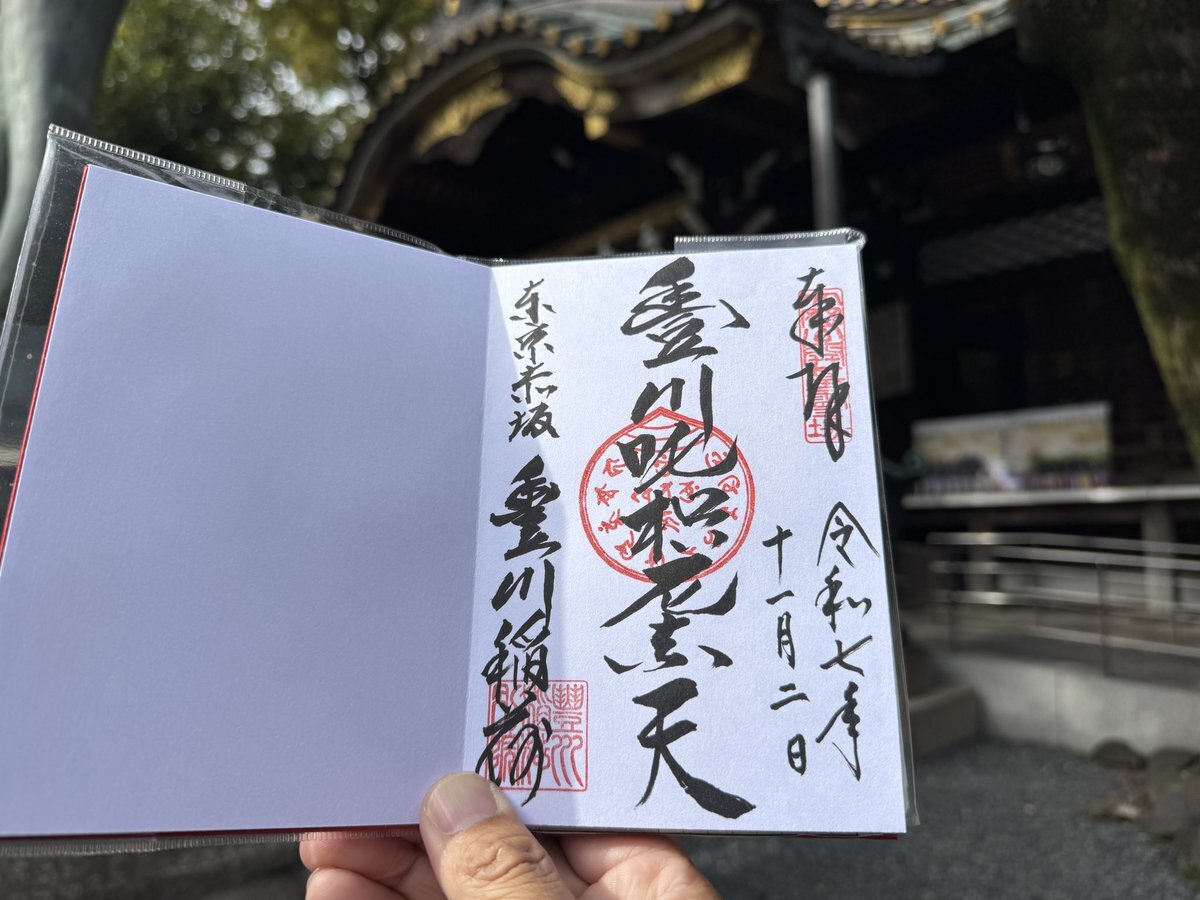 奉拜
令和七年
十一月二日
豊川吒枳尼天
東京赤坂
豊川稲荷